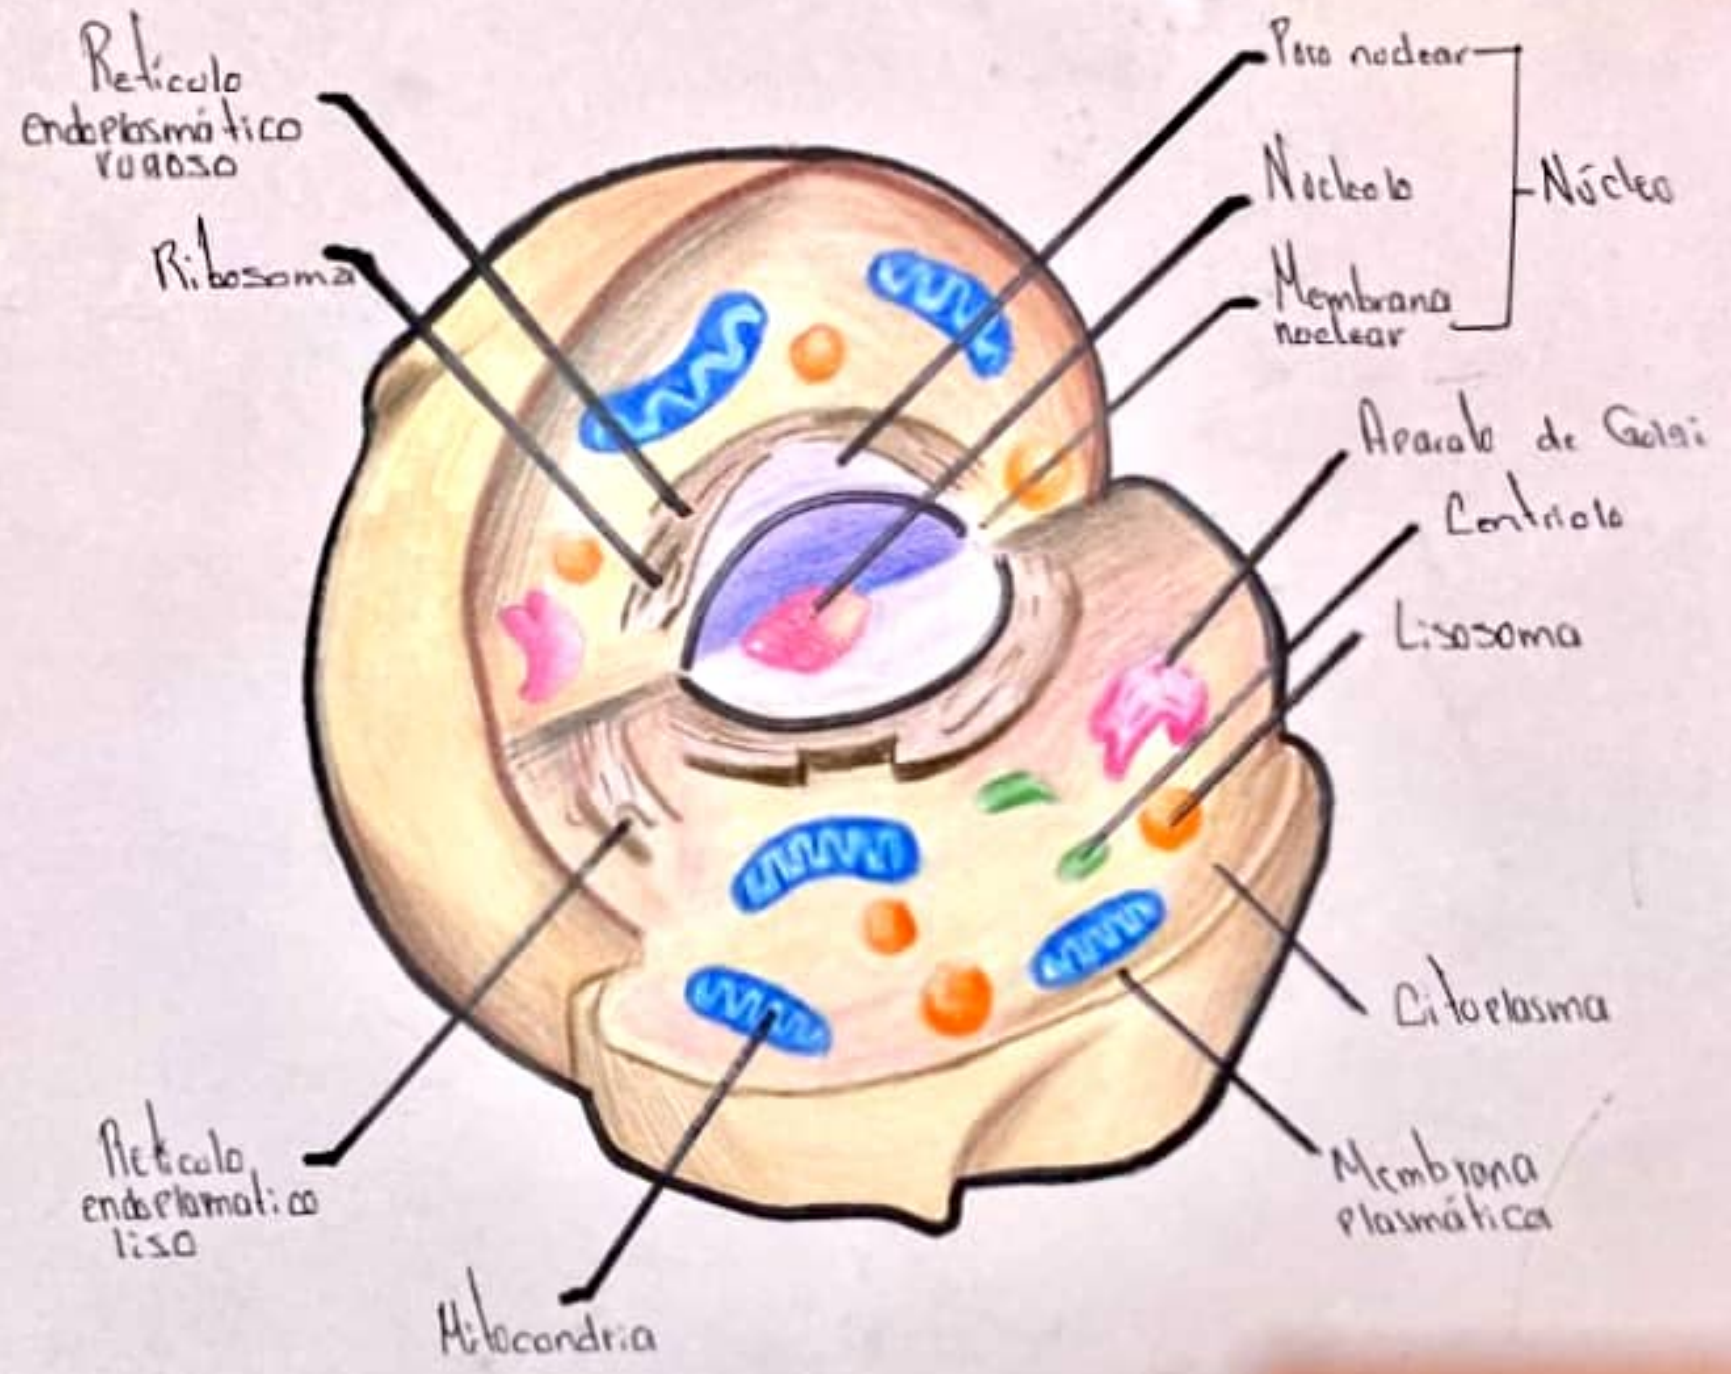 Retículo
endoplasmático
rugoso
Ribosoma
Poro nuclear
Nucleolo
Membrana
nuclear
Núcleo
Aparato de Golgi
Centriolo
Lisosoma
Citoplasma
Membrana
Plasmática
Mitocondria
Retículo
endoplamatico
liso